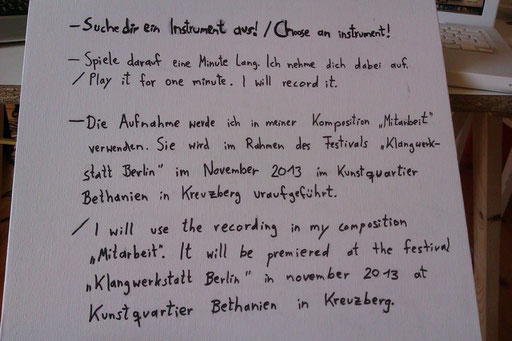 – Suche dir ein Instrument aus! / Choose an instrument!
– Spiele darauf eine Minute Lang. Ich nehme dich dabei auf.
/ Play it for one minute. I will record it.
– Die Aufnahme werde ich in meiner Komposition „Mitarbeit"
verwenden. Sie wird im Rahmen des Festivals „Klangwerk-
statt Berlin" im November 2013 im Kunstquartier
Bethanien in Kreuzberg uraufgeführt.
/ I will use the recording in my composition
„Mitarbeit". It will be premiered at the festival
„Klangwerkstatt Berlin" in november 2013 at
Kunstquartier Bethanien in Kreuzberg.